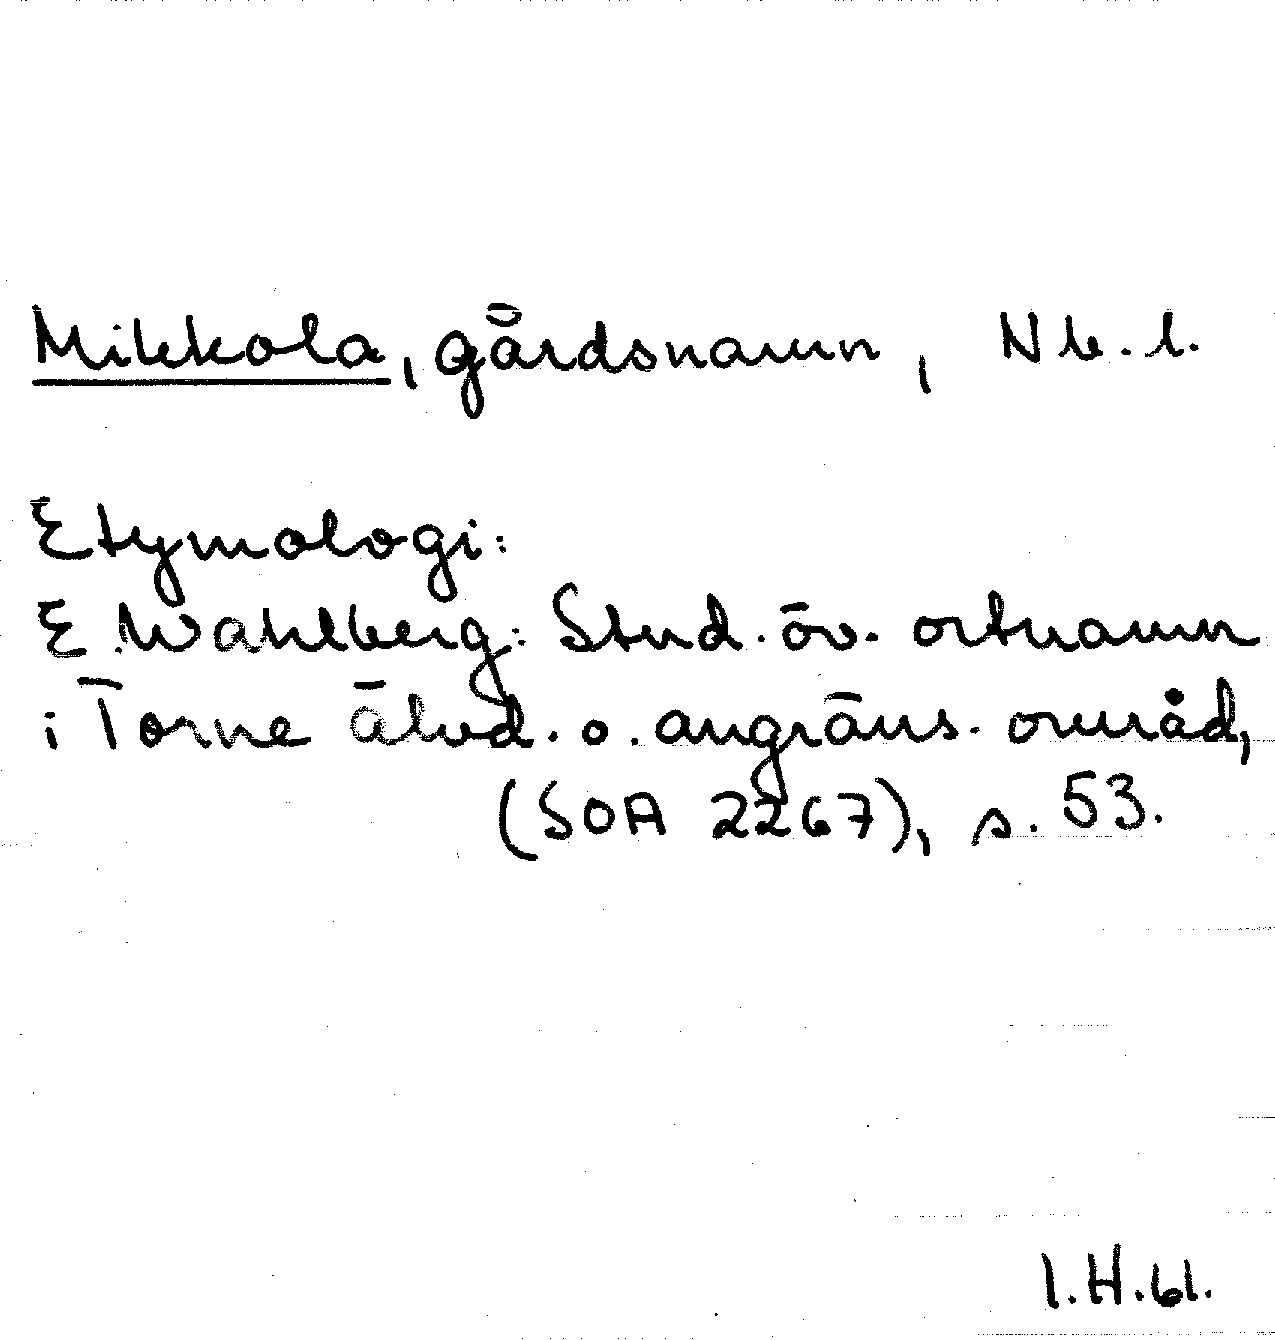 Mikkola, gårdsnamn, Nb. l.
Etymologi:
E. Wahlberg: Stud. öv. ortnamn
i Torne älvd. o. angräns. område,
(SOA 2267), s. 53.
I.H.61.